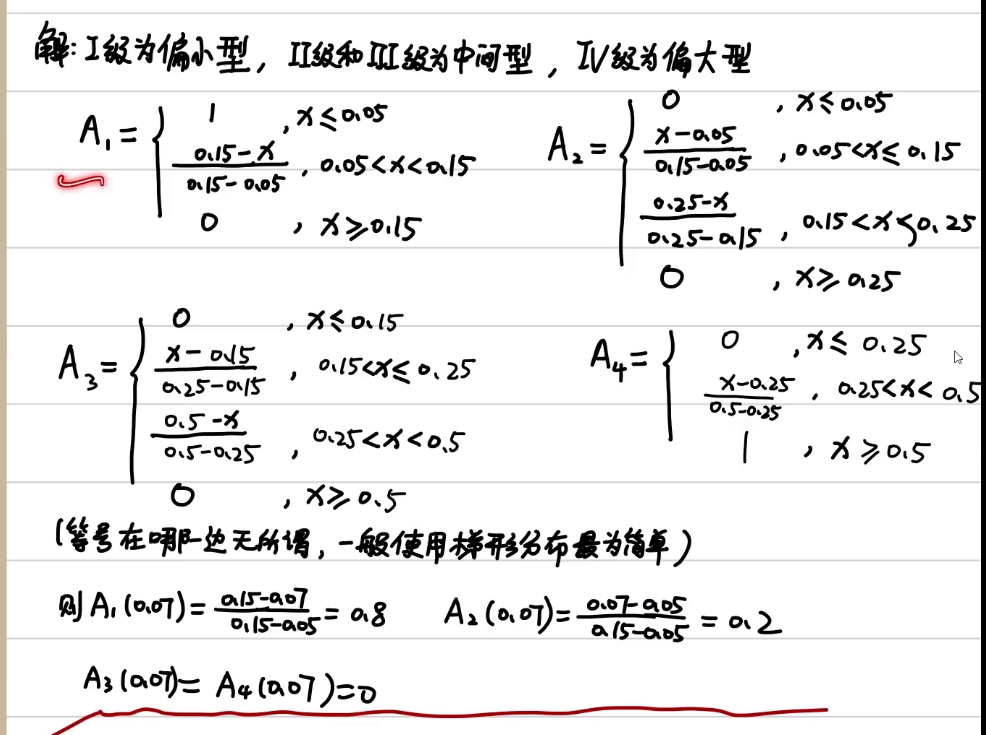 解：I级为偏小型，II级和III级为中间型，IV级为偏大型
A₁= { 1 , x≤0.05
(0.15-x)/(0.15-0.05) , 0.05<x<0.15
0 , x≥0.15
A₂= { 0 , x≤0.05
(x-0.05)/(0.15-0.05) , 0.05<x≤0.15
(0.25-x)/(0.25-0.15) , 0.15<x<0.25
0 , x≥0.25
A₃= { 0 , x≤0.15
(x-0.15)/(0.25-0.15) , 0.15<x≤0.25
(0.5-x)/(0.5-0.25) , 0.25<x<0.5
0 , x≥0.5
A₄= { 0 , x≤0.25
(x-0.25)/(0.5-0.25) , 0.25<x<0.5
1 , x≥0.5
（等号在哪一边无所谓，一般使用梯形分布最为简单）
则A₁(0.07)=(0.15-0.07)/(0.15-0.05)=0.8 A₂(0.07)=(0.07-0.05)/(0.15-0.05)=0.2
A₃(0.07)=A₄(0.07)=0